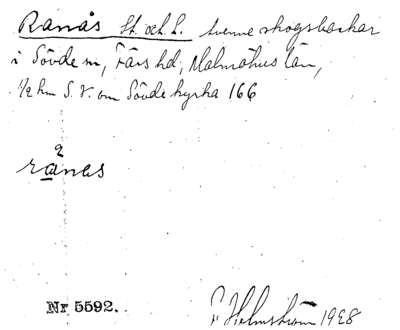 Ranås St. och L. tvenne skogsbackar
i Sövde sn, Färs hd, Malmöhus län,
1/2 km S.V. om Sövde kyrka 166
ranas
Nr 5592.
Holmström 1928